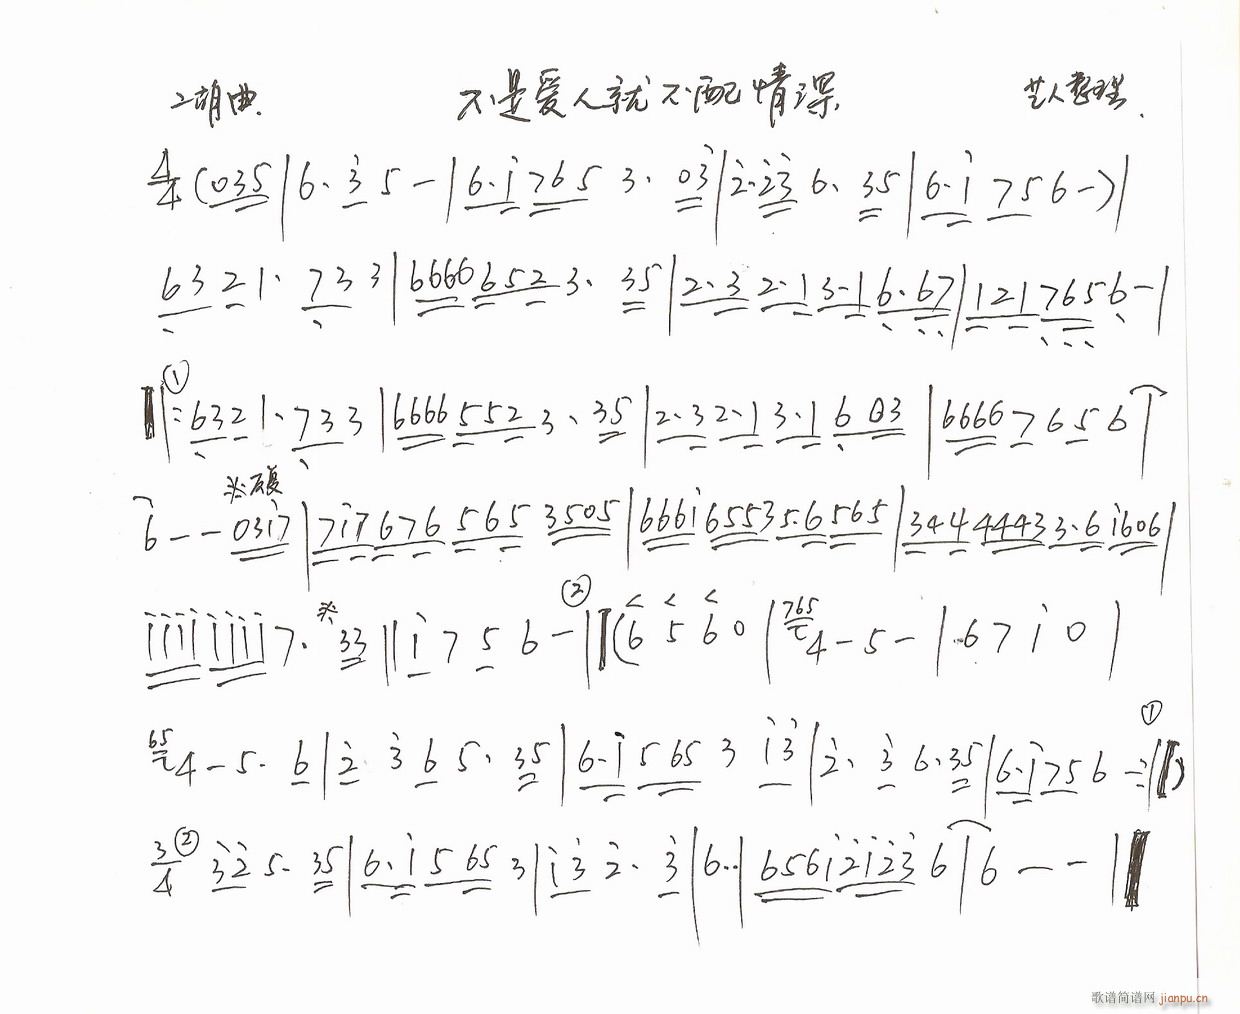 二胡曲 不是爱人就不配情深 艺人整理
4/4 (035|6·3 5-|6·i 765 3· 03|2·23 6·35|6·i 75 6-)|
6321· 733|6666 652 3· 35|2·3 2·1 3·1 6·67|121 765 6-|
① ‖:6321· 733|6666 552 3· 35|2·3 2·1 3·1 6 03|6666 7 6 5 6|
※反复
6--03i7|7i7676 565 3505|666i 6553 5·6 565|344 4443 3·6 i606|
iiii iiii 7·※ 33‖i 7 5 6-|② ‖(6 5 6 0|765 4-5-|·6 7 i 0|
65 4-5· 6|2· 3 6 5· 35|6·i 5 65 3 i3|2· 3 6·35|6·i 75 6-:‖) ①
3/4 ② 32 5· 35|6·i 5 65 3|i3 2· 3|6··|656i 2i23 6|6--‖
歌谱简谱网 jianpu.cn